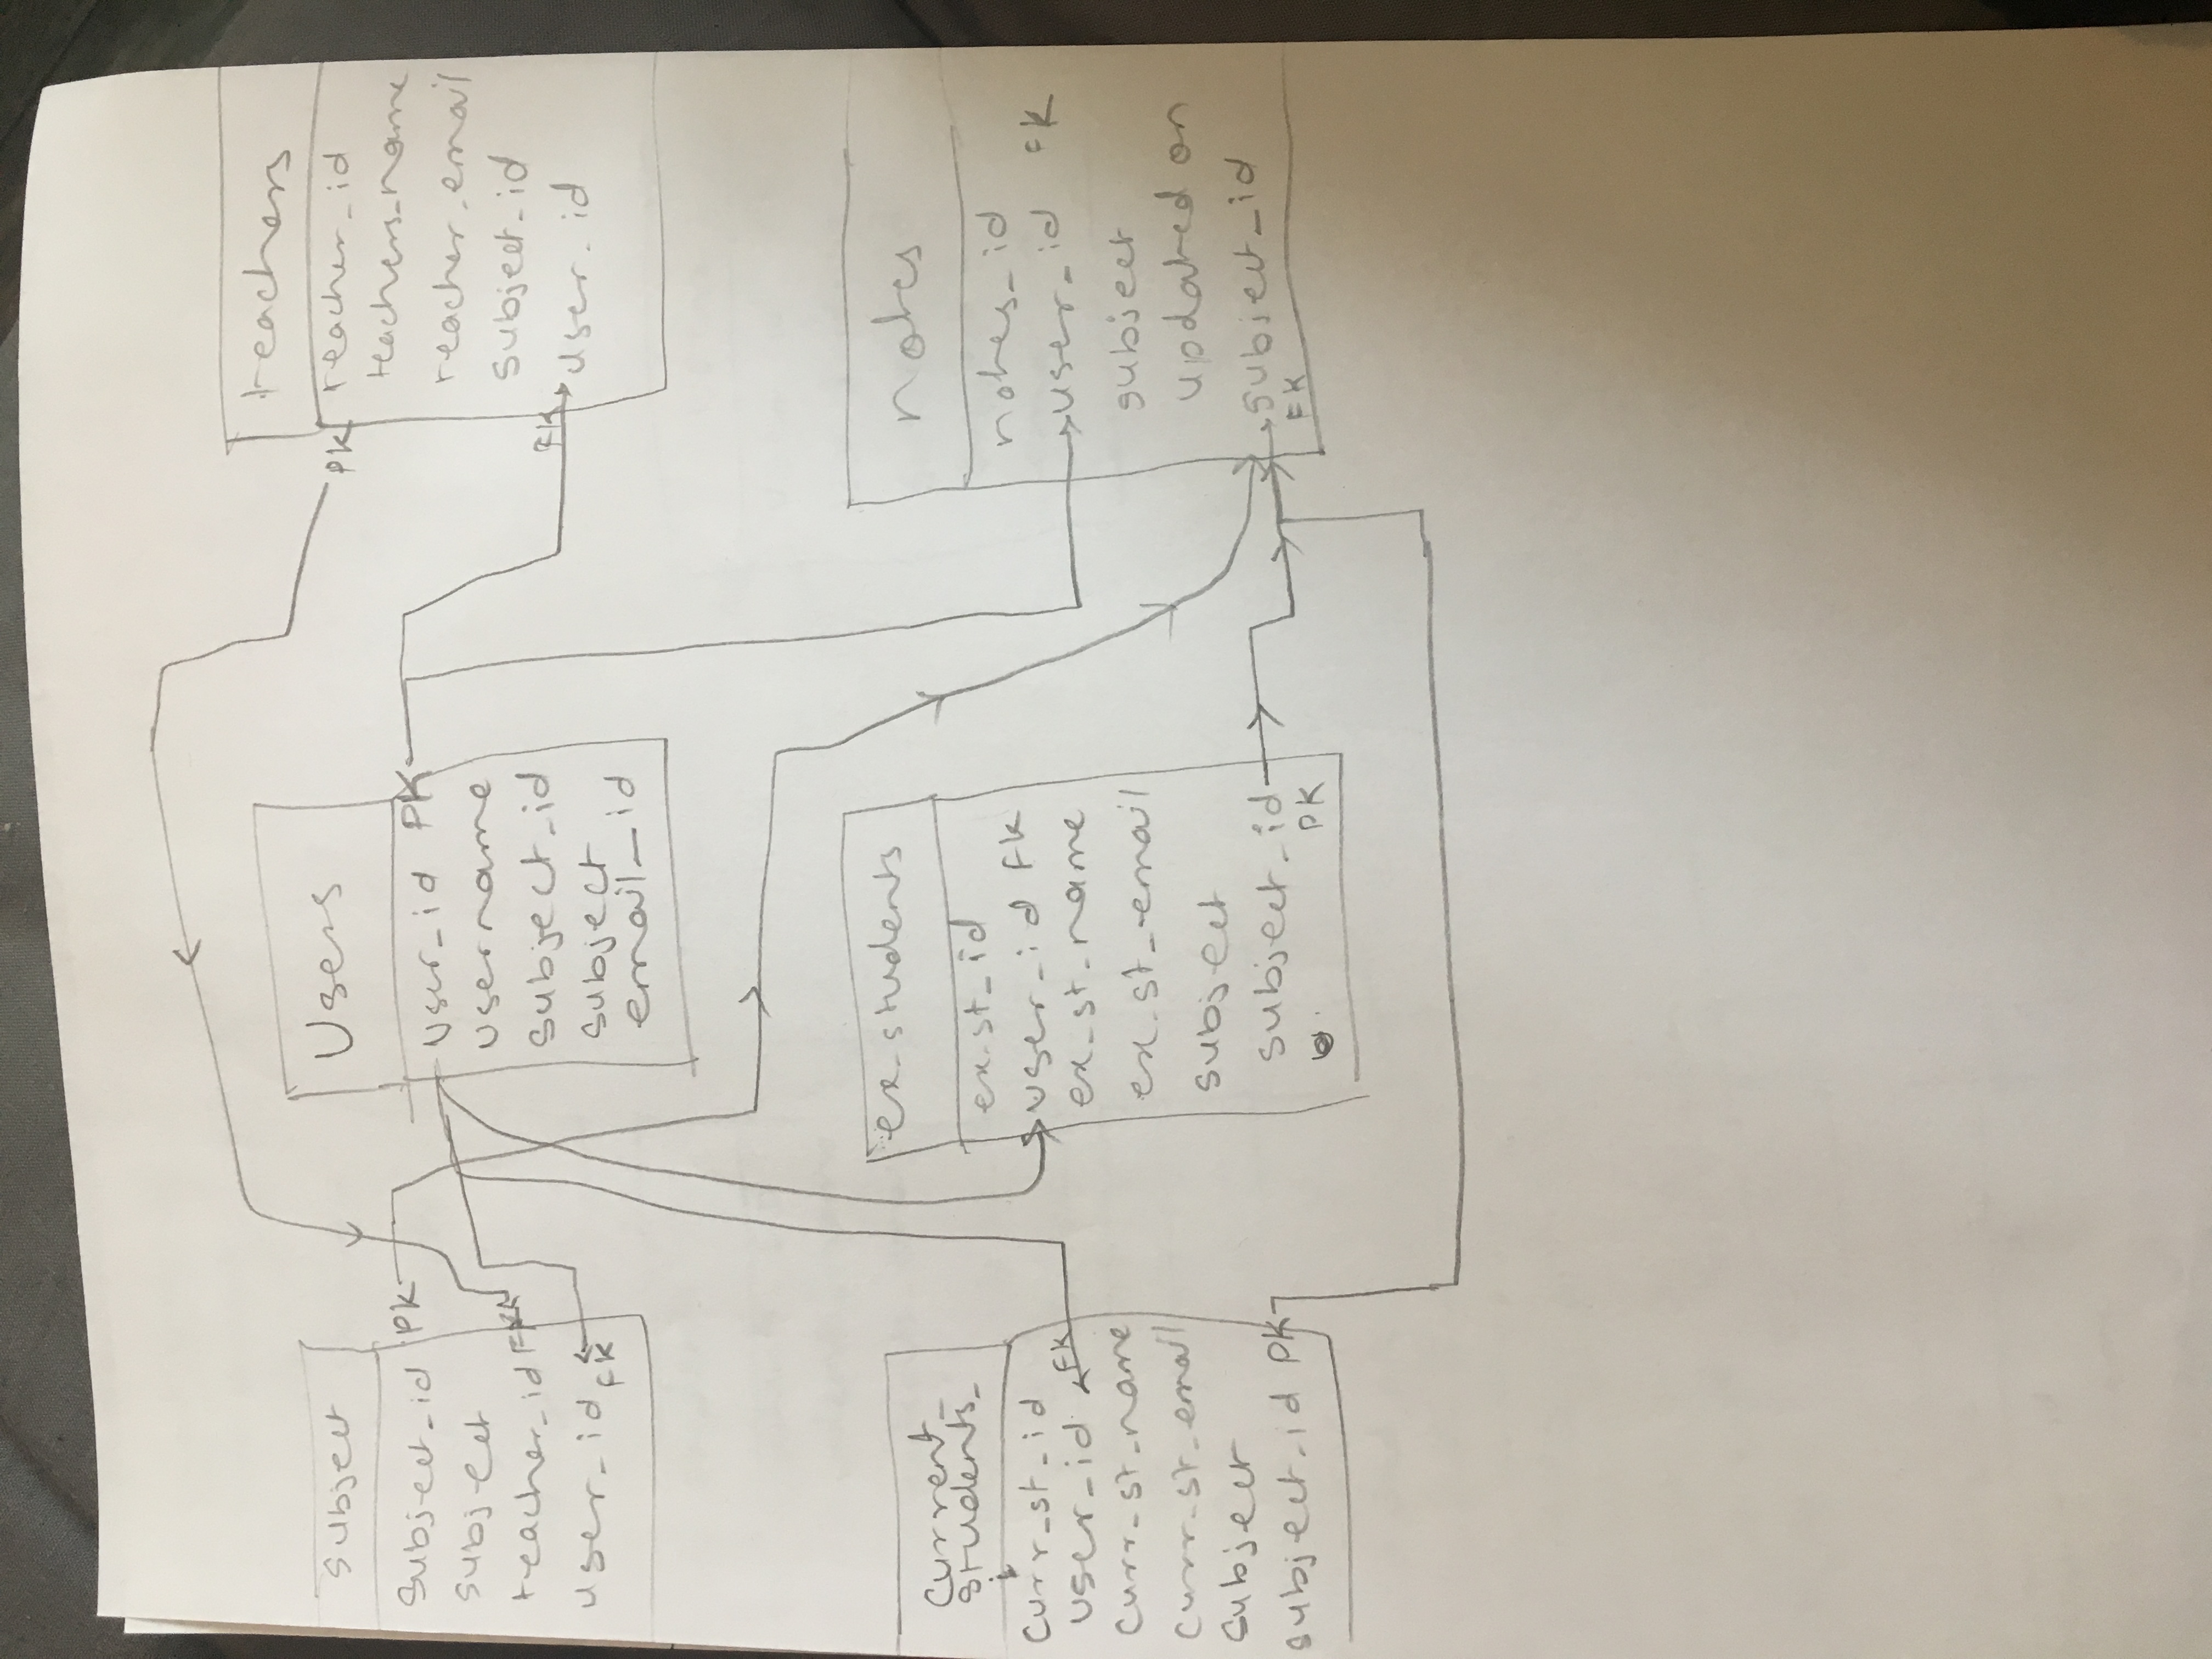 Subject
Subject_id PK
Subject
teacher_id FK
user_id FK
Users
User_id PK
Username
Subject_id
Subject
email_id
teachers
PK teacher_id
teachers_name
teacher_email
Subject_id
FK user_id
Current_
students_
Curr_st_id
User_id FK
Curr_st_name
Curr_st_email
Subject
Subject_id PK
ex_students
ex_st_id
User_id FK
ex_st_name
ex_st_email
Subject
Subject_id
PK
notes
notes_id
user_id FK
subject
updated on
Subject_id
FK